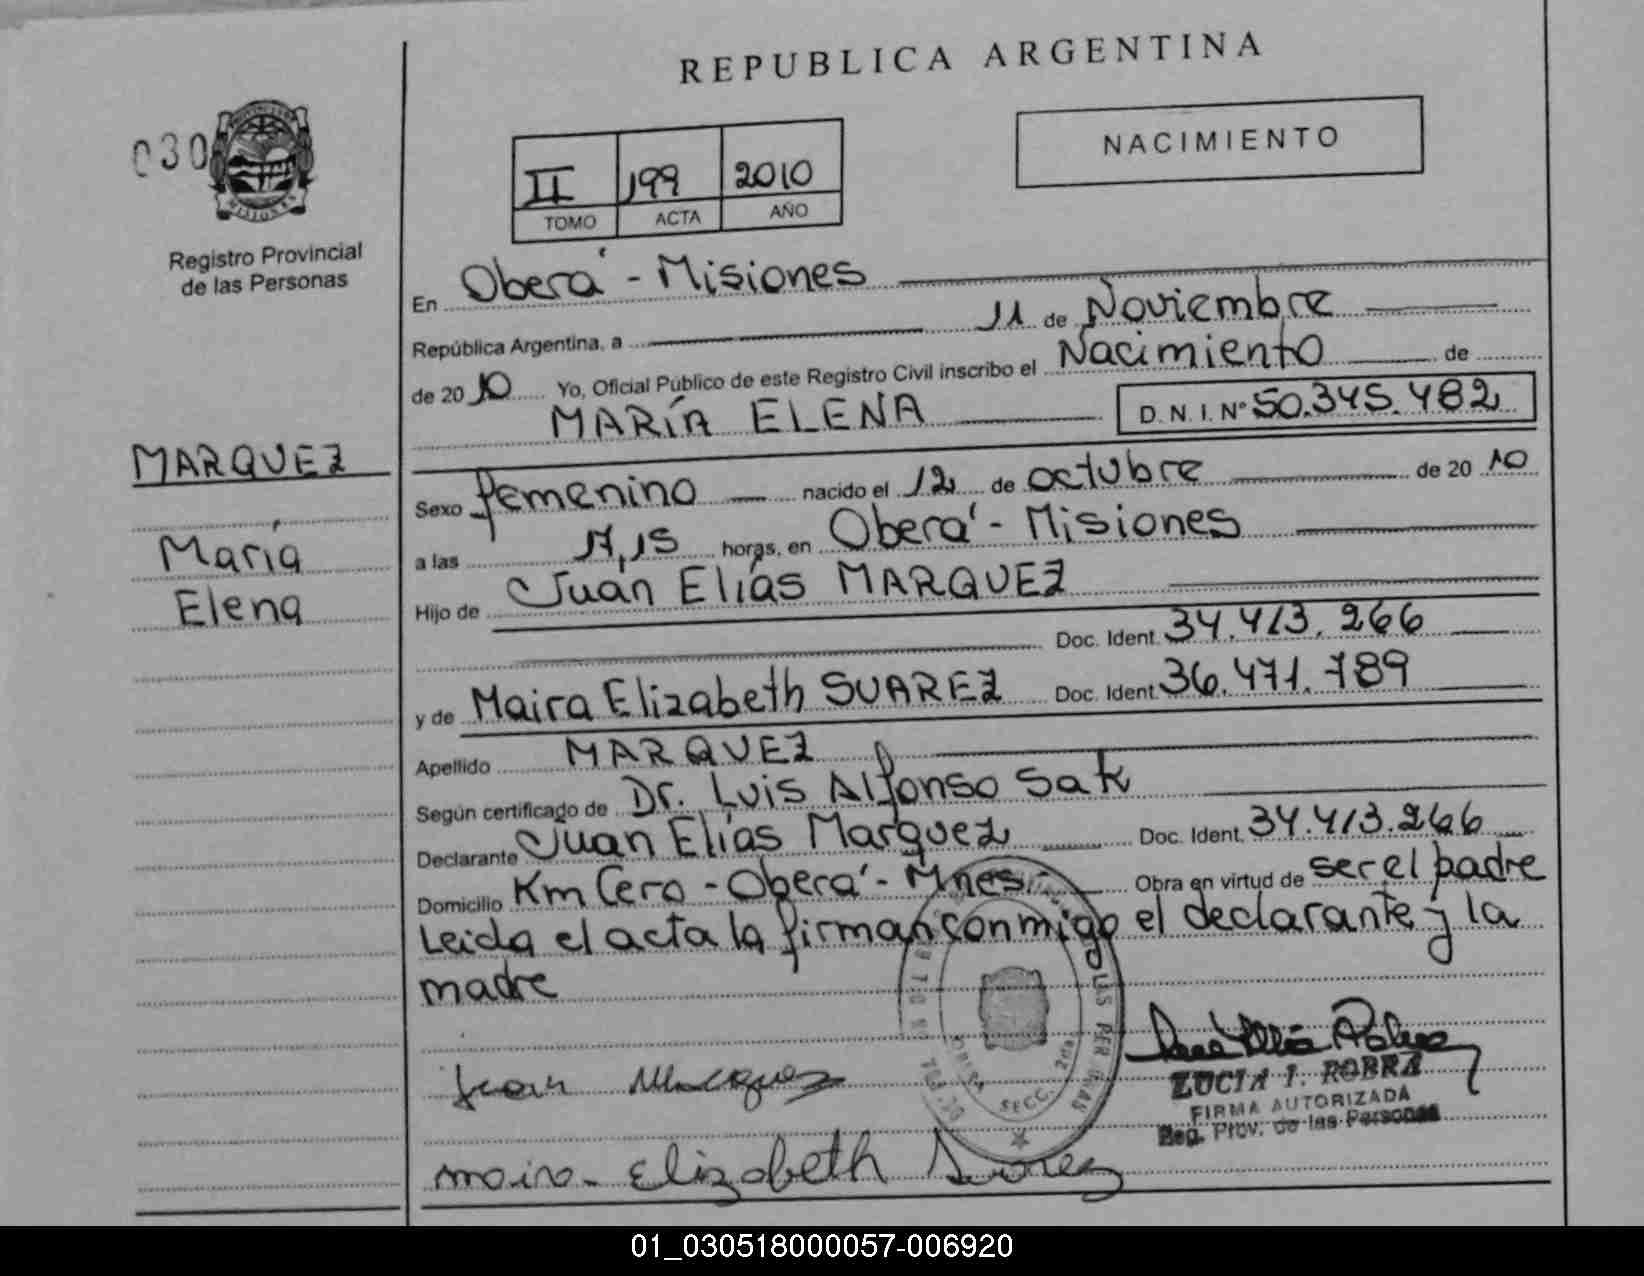 REPUBLICA ARGENTINA
030
PROVINCIA DE
MISIONES
Registro Provincial
de las Personas
II 199 2010
TOMO ACTA AÑO
NACIMIENTO
En Oberá - Misiones
República Argentina, a 11 de Noviembre
de 2010 Yo, Oficial Público de este Registro Civil inscribo el Nacimiento de
MARÍA ELENA D.N.I. Nº 50.345.482
MARQUEZ
María
Elena
Sexo femenino nacido el 12 de octubre de 2010
a las 17,15 horas, en Oberá - Misiones
Hijo de Juan Elías MARQUEZ
Doc. Ident. 34.413.266
y de Maira Elizabeth SUAREZ Doc. Ident. 36.471.789
Apellido MARQUEZ
Según certificado de Dr. Luis Alfonso Sak
Declarante Juan Elías Marquez Doc. Ident. 34.413.266
Domicilio Km Cero - Oberá - Mnes. Obra en virtud de ser el padre
Leida el acta la firman conmigo el declarante y la
madre
SECC. 2da
Juan Marquez
LUCIA I. ROBRA
FIRMA AUTORIZADA
Reg. Prov. de las Personas
maira Elizabeth Suarez
01_030518000057-006920